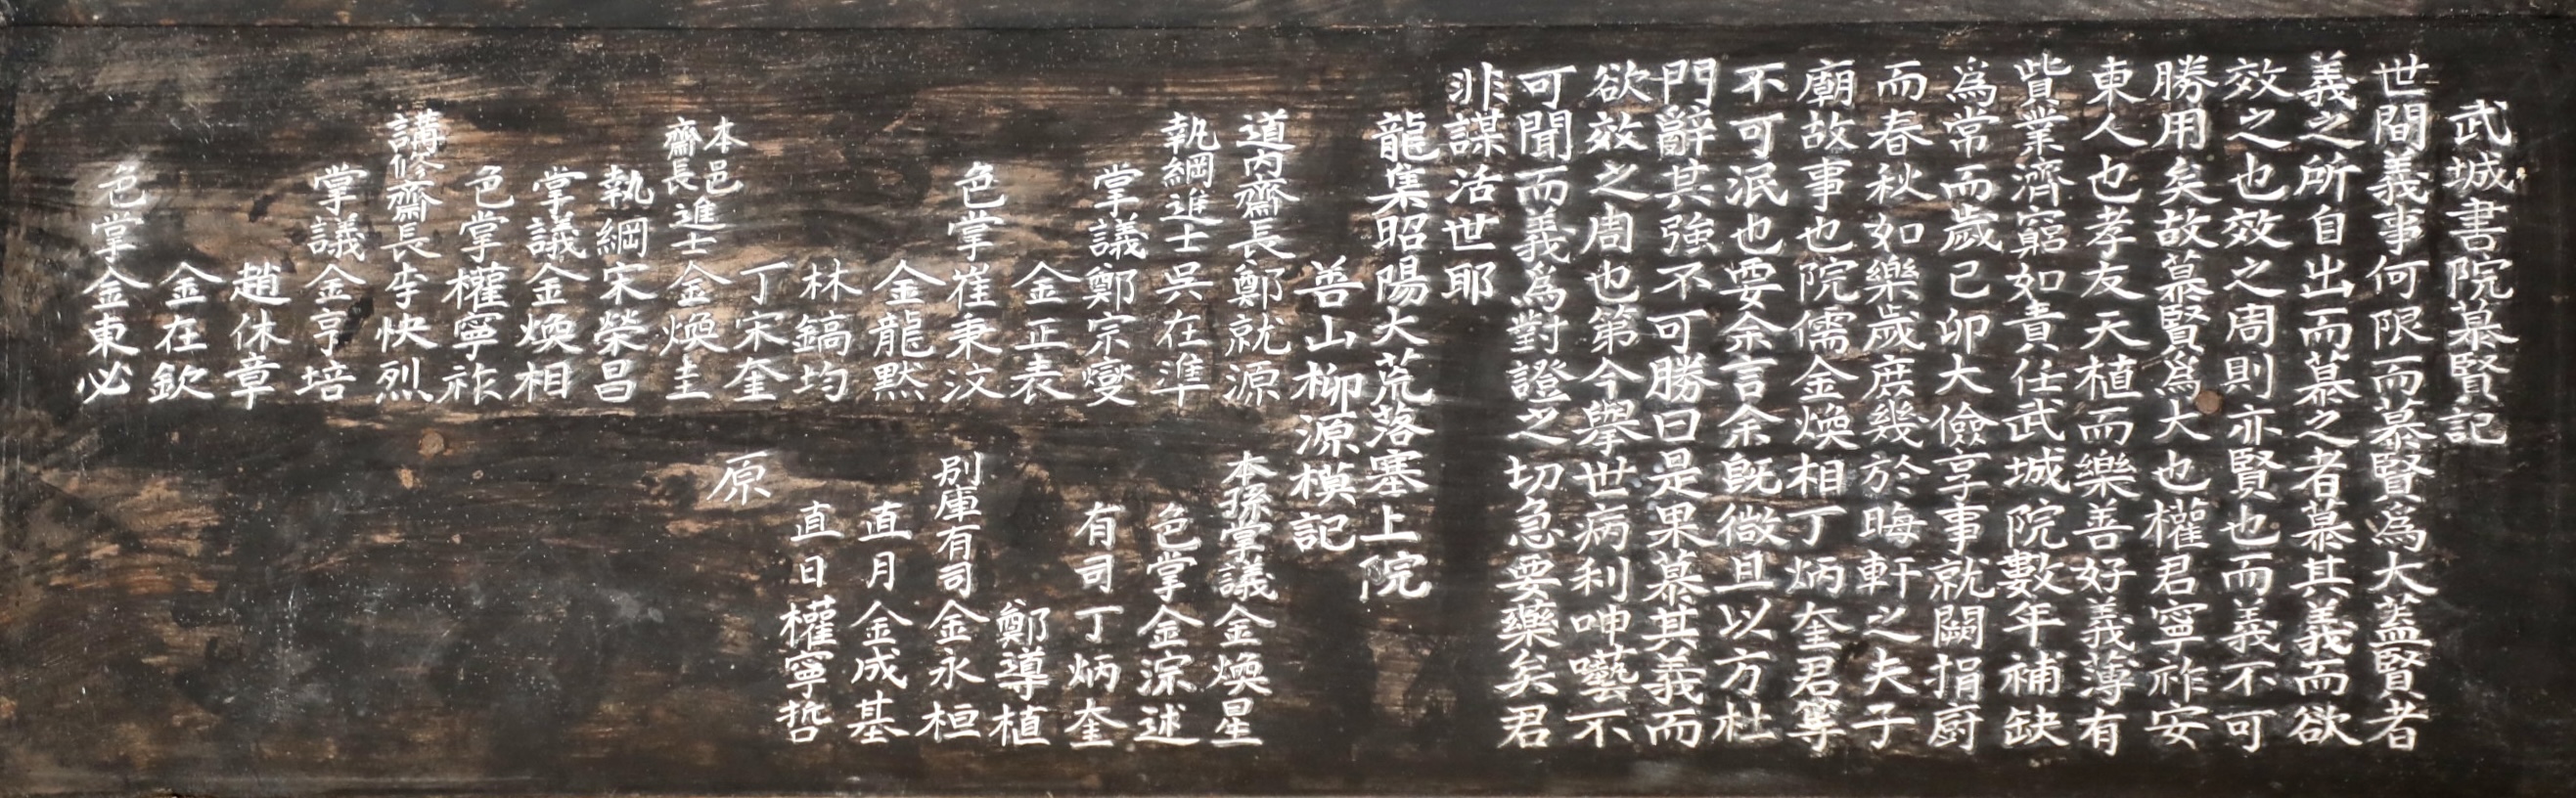 武城書院慕賢記
世間義事何限而慕賢爲大蓋賢者
義之所自出而慕之者慕其義而欲
效之也效之周則亦賢也而義不可
勝用矣故慕賢爲大也權君寧祚安
東人也孝友天植而樂善好義薄有
貲業濟窮如責任武城院數年補缺
爲常而歲己卯大儉享事就闕捐廚
而春秋如樂歲庶幾於晦軒之夫子
廟故事也院儒金煥相丁炳奎君等
不可泯也要余言余旣微且以方杜
門辭其強不可勝曰是果慕其義而
欲效之周也第今擧世病利呻囈不
可聞而義爲對證之切急要藥矣君
非謀活世耶
龍集昭陽大荒落塞上院
善山柳源模記
道內齋長鄭就源
執綱進士吳在準
掌議鄭宗燮
金正表
色掌崔秉汶
金龍默
林鎬均
丁宋奎
本邑齋長進士金煥圭
執綱宋榮昌
掌議金煥相
色掌權寧祚
講修齋長李快烈
掌議金亨培
趙休章
金在欽
色掌金東必
本孫掌議金煥星
色掌金淙述
有司丁炳奎
鄭導植
別庫有司金永桓
直月金成基
直日權寧哲
原